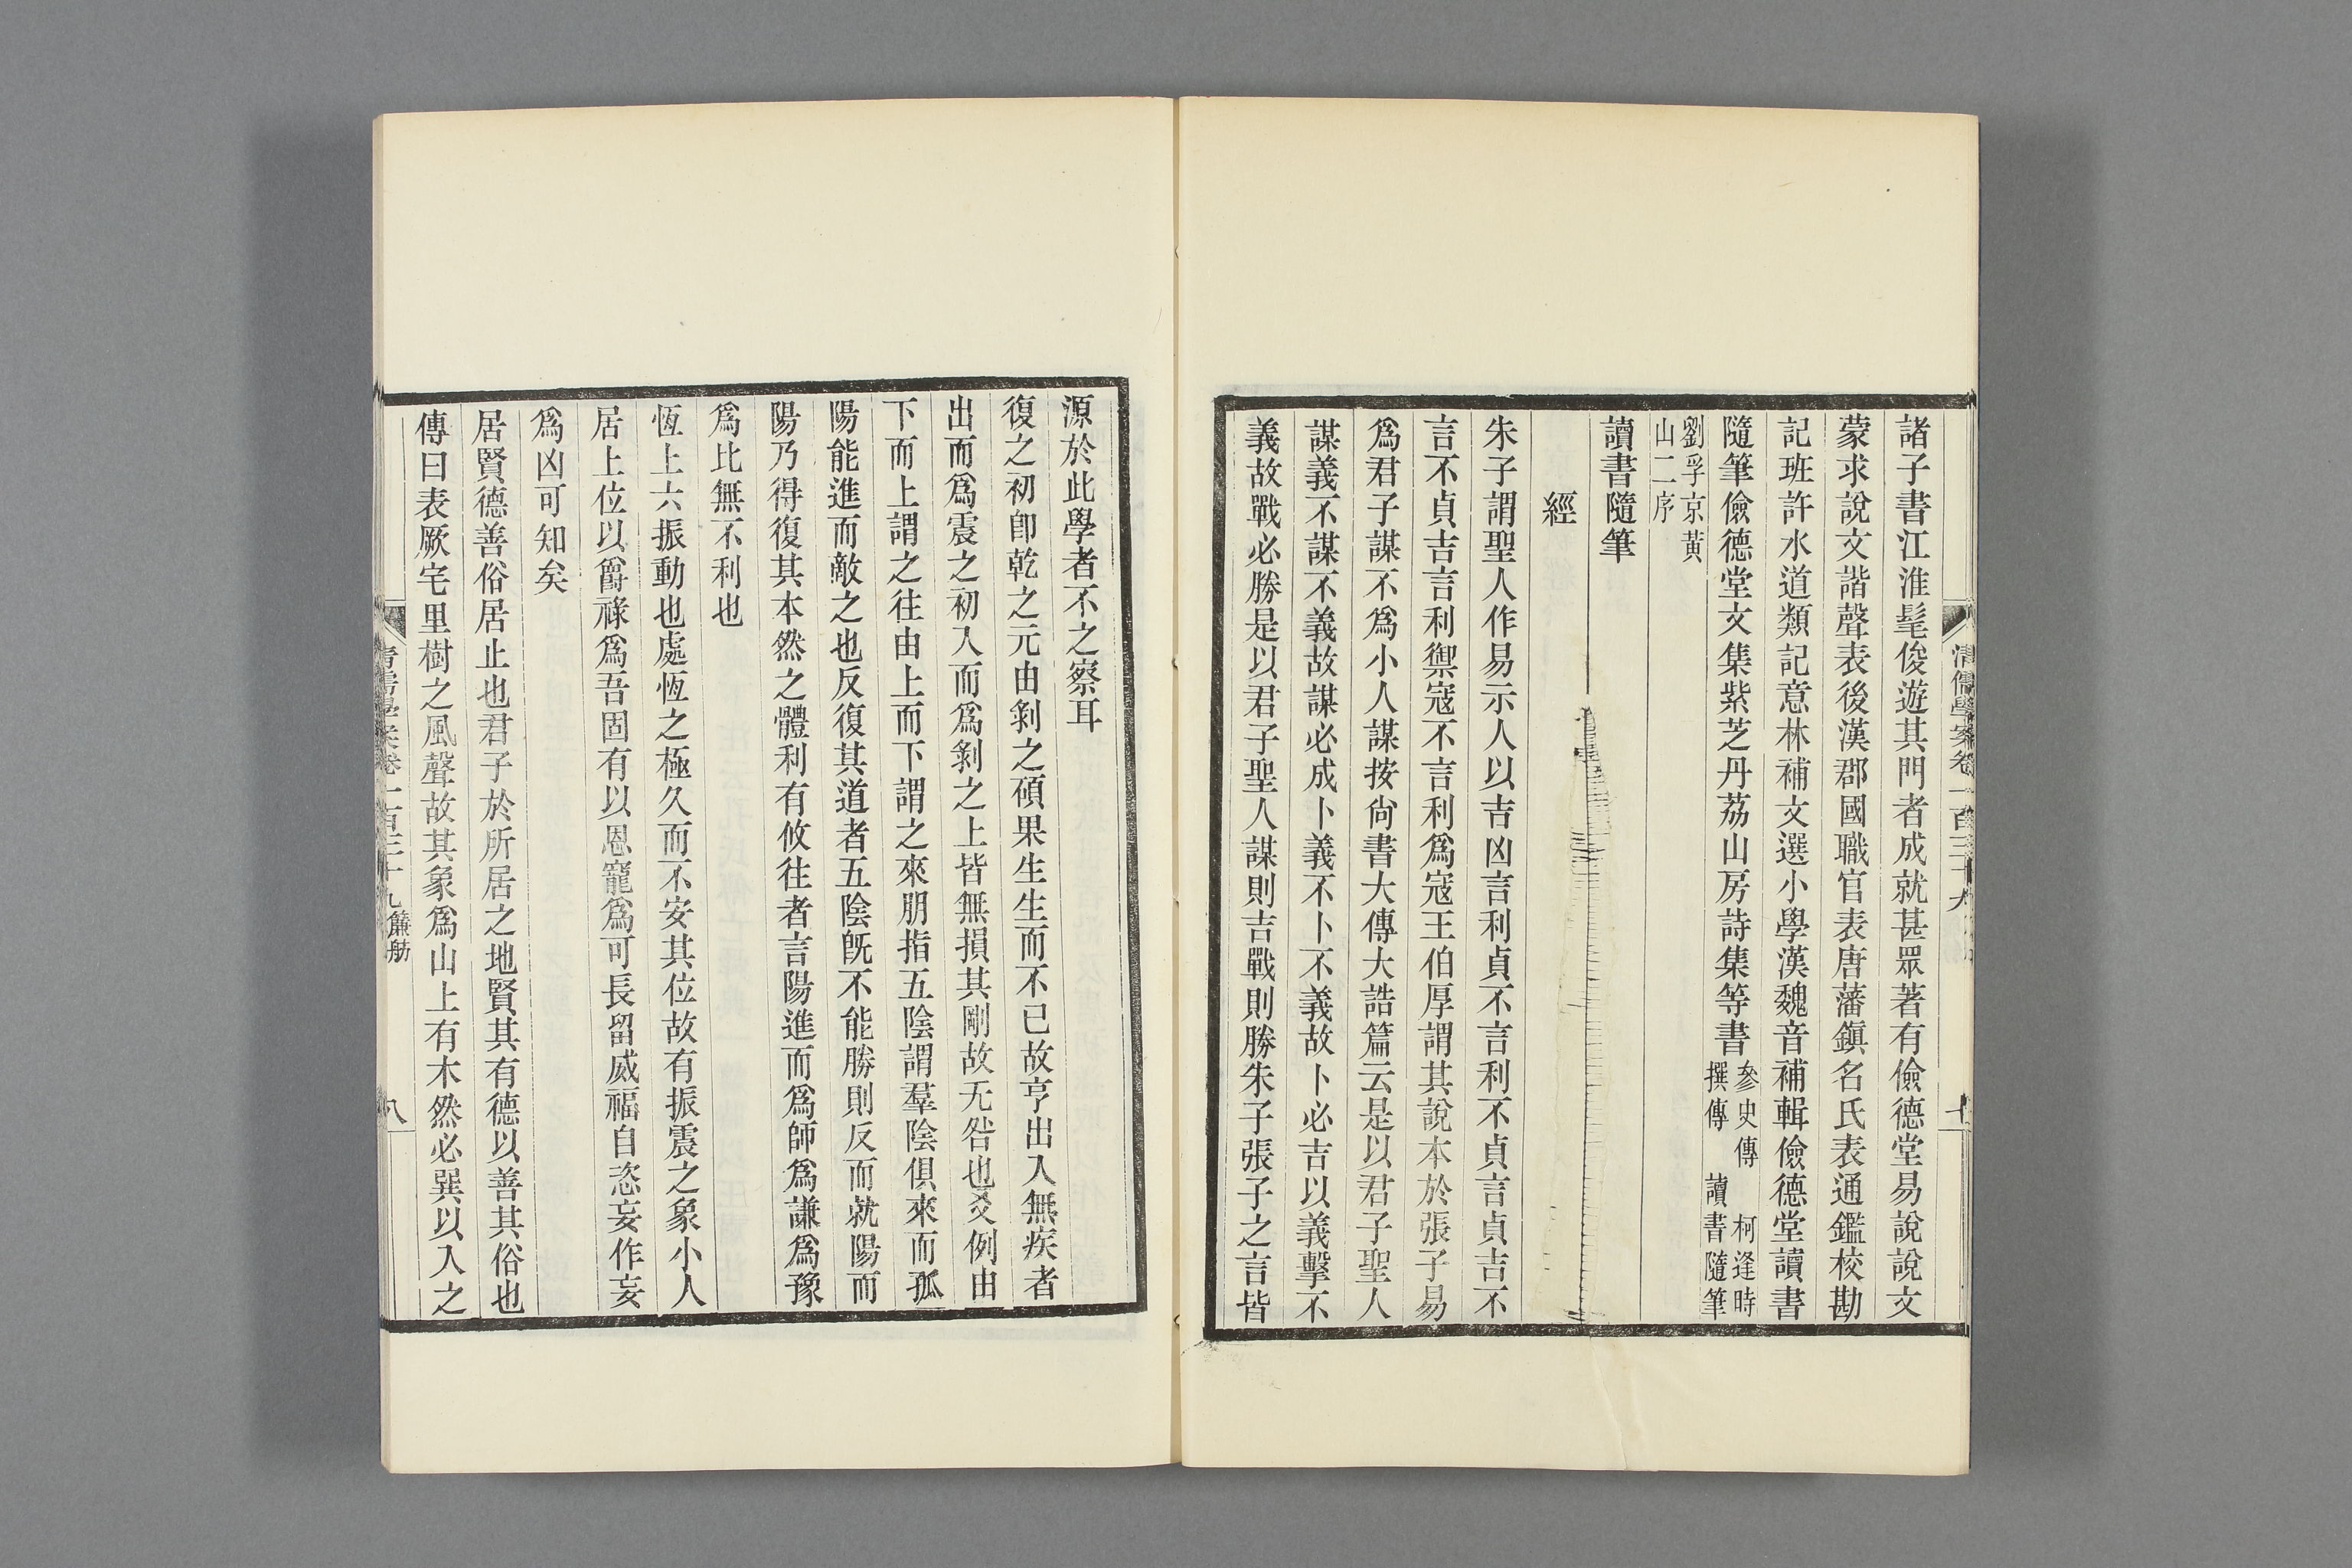 清儒學案卷一百三十九
諸子書江淮髦俊遊其門者成就甚眾著有儉德堂易說說文
蒙求說文諧聲表後漢郡國職官表唐藩鎭名氏表通鑑校勘
記班許水道類記意林補文選小學漢魏音補輯儉德堂讀書
隨筆儉德堂文集紫芝丹荔山房詩集等書參史傳 柯逢時
撰傳 讀書隨筆
劉孚京黃
山二序
讀書隨筆
經
朱子謂聖人作易示人以吉凶言利貞不言利不貞言貞吉不
言不貞吉言利禦寇不言利爲寇王伯厚謂其說本於張子易
爲君子謀不爲小人謀按尙書大傳大誥篇云是以君子聖人
謀義不謀不義故謀必成卜義不卜不義故卜必吉以義擊不
義故戰必勝是以君子聖人謀則吉戰則勝朱子張子之言皆
源於此學者不之察耳
復之初卽乾之元由剝之碩果生生而不已故亨出入無疾者
出而爲震之初入而爲剝之上皆無損其剛故无咎也爻例由
下而上謂之往由上而下謂之來朋指五陰謂羣陰俱來而孤
陽能進而敵之也反復其道者五陰旣不能勝則反而就陽而
陽乃得復其本然之體利有攸往者言陽進而爲師爲謙爲豫
爲比無不利也
恆上六振動也處恆之極久而不安其位故有振震之象小人
居上位以爵祿爲吾固有以恩寵爲可長留威福自恣妄作妄
爲凶可知矣
居賢德善俗居止也君子於所居之地賢其有德以善其俗也
傳曰表厥宅里樹之風聲故其象爲山上有木然必巽以入之
清儒學案卷一百三十九 簾舫 八